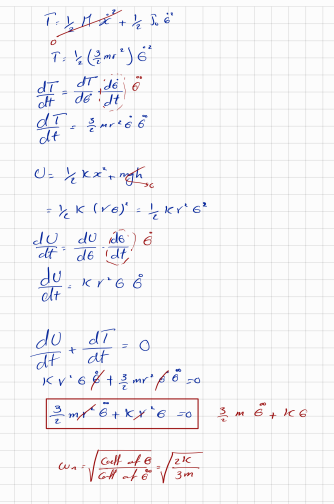 T = 1/2 M ẋ² + 1/2 J₀ θ̇²
0
T = 1/2 (3/2 mr²) θ̇²
dT/dt = dT/dθ̇ + dθ̇/dt θ̈
dT/dt = 3/2 mr² θ̇ θ̈
U = 1/2 K x² + mgh
= 1/2 K (rθ)² = 1/2 K r² θ²
dU/dt = dU/dθ · dθ/dt θ̇
dU/dt = K r² θ θ̇
dU/dt + dT/dt = 0
K r² θ θ̇ + 3/2 mr² θ̇ θ̈ = 0
3/2 m r² θ̈ + K r² θ = 0 3/2 m θ̈ + K θ
ωₙ = √(Coff of θ / Coff of θ̈) = √(2K / 3m)